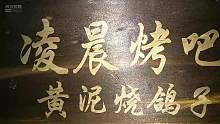 凌晨烤吧
黄泥烧鸽子